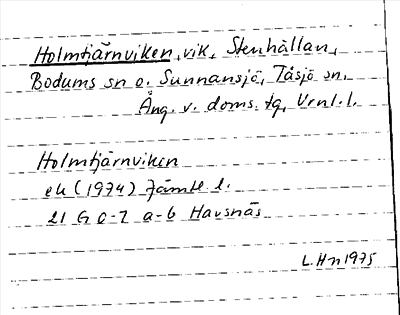 Holmtjärnviken, vik, Stenhällan,
Bodums sn o. Sunnansjö, Tåsjö sn,
Ång. v. doms. tg, Vrnl. l.
Holmtjärnviken
ek (1974) Jämtl. l.
21 G 0-1 a-b Havsnäs
L. Hn 1975